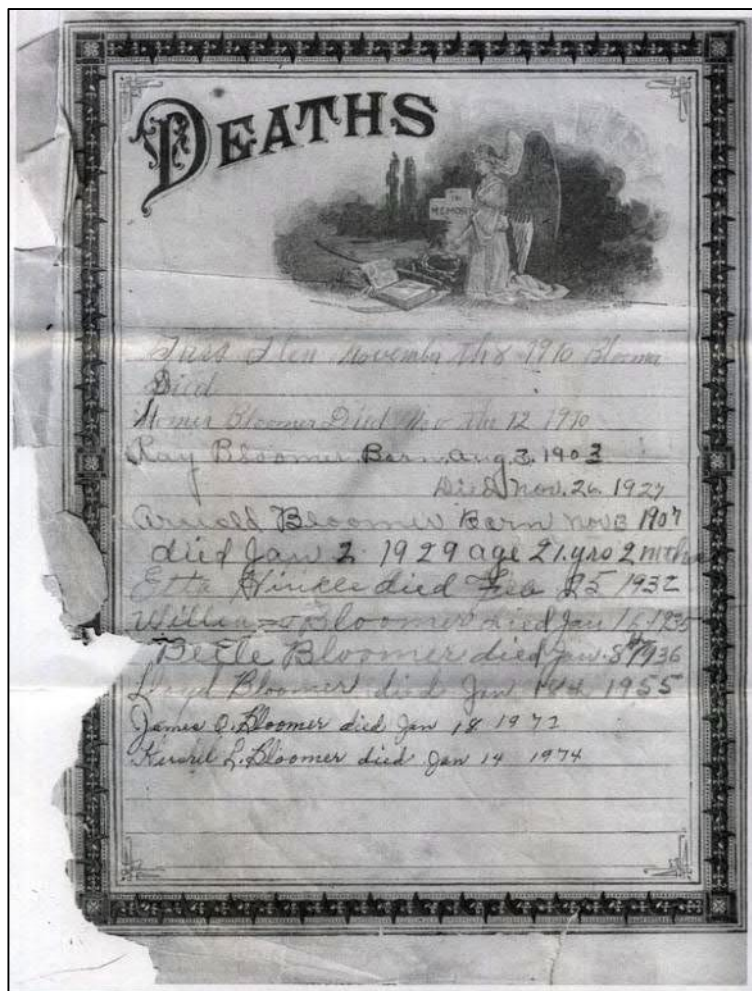 DEATHS
IN
MEMORI
November the 8 1910 Bloomer
Died
Homer Bloomer Died Nov the 12 1910
Ray Bloomer Born Aug. 3. 1903
Died Nov. 26. 1927
Arnold Bloomer Born Nov 3 1907
died Jan 2 1929 age 21 yrs 2 mths
Etta Hinkle died Feb 25 1932
Bloomer died Jan 16 1935
Belle Bloomer died Jan. 8th 1936
Lloyd Bloomer died Jan 1955
James O. Bloomer died Jan 18 1972
L. Bloomer died Jan 14 1974